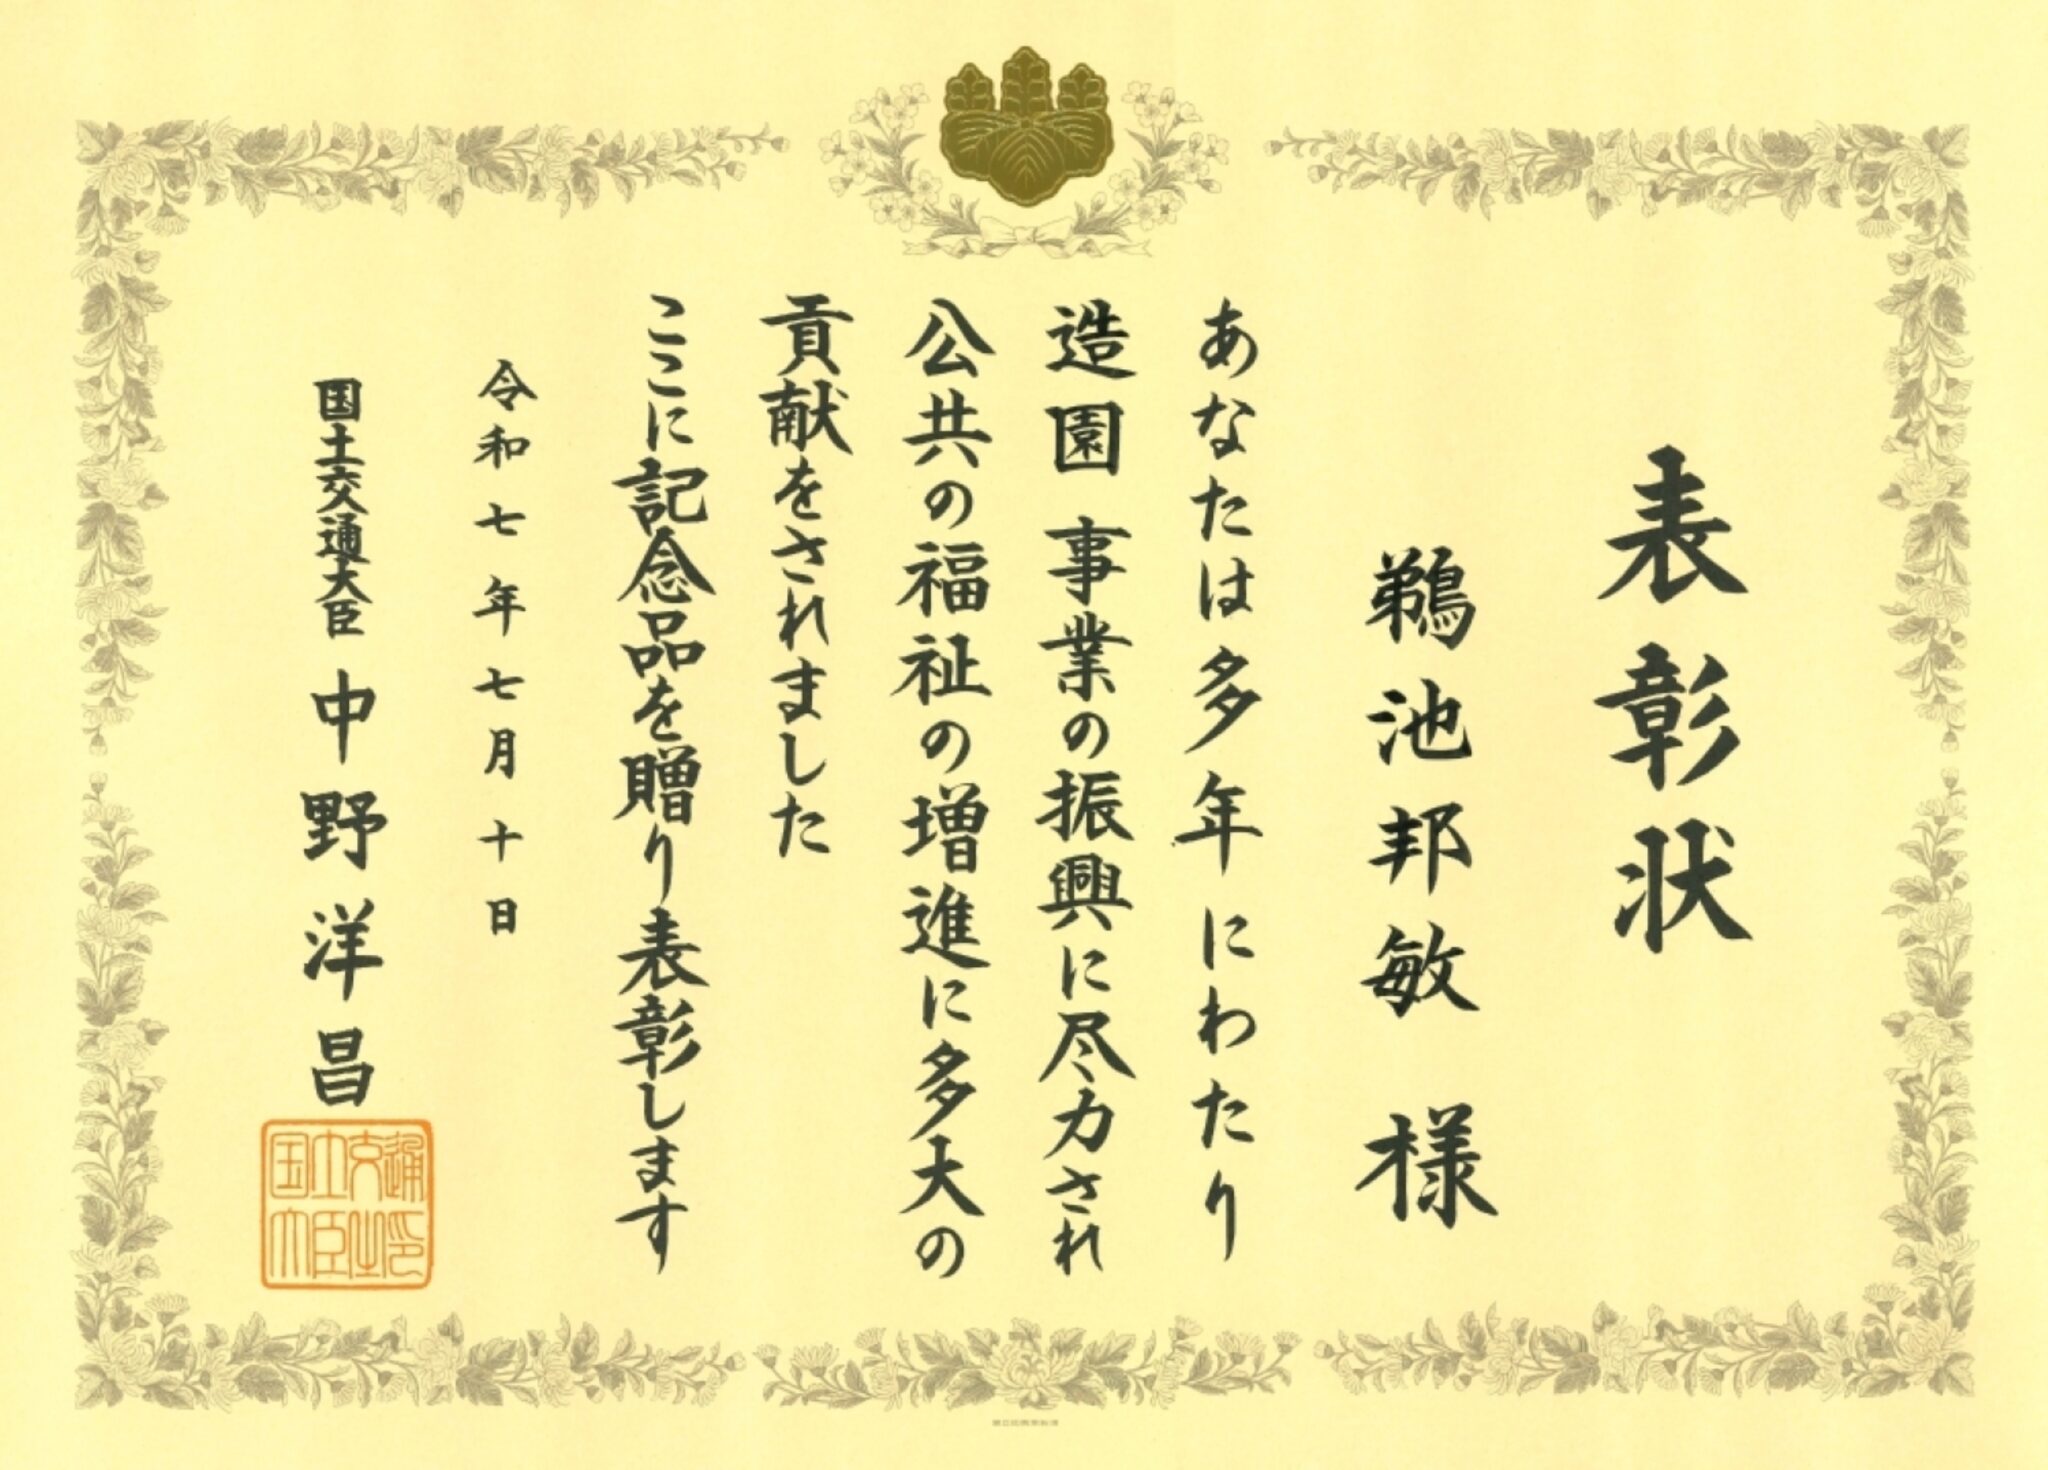 表彰状
鵜池邦敏 様
あなたは多年にわたり
造園事業の振興に尽力され
公共の福祉の増進に多大の
貢献をされました
ここに記念品を贈り表彰します
令和七年七月十日
国土交通大臣 中野洋昌
国土交通
大臣之印